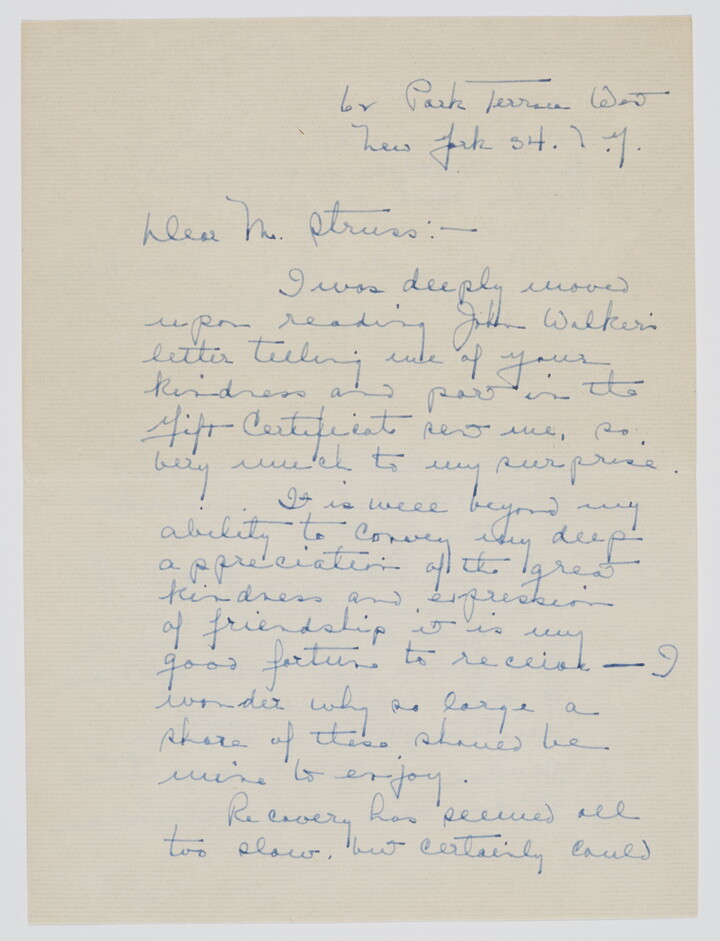 62 Park Terrace West
New York 34. N.Y.
Dear Mr. Struss:—
I was deeply moved
upon reading John Walker's
letter telling me of your
kindness and part in the
Gift Certificate sent me, so
very much to my surprise.
It is well beyond my
ability to convey my deep
appreciation of the great
kindness and expression
of friendship it is my
good fortune to receive — I
wonder why so large a
share of these should be
mine to enjoy.
Recovery has seemed all
too slow, but certainly could